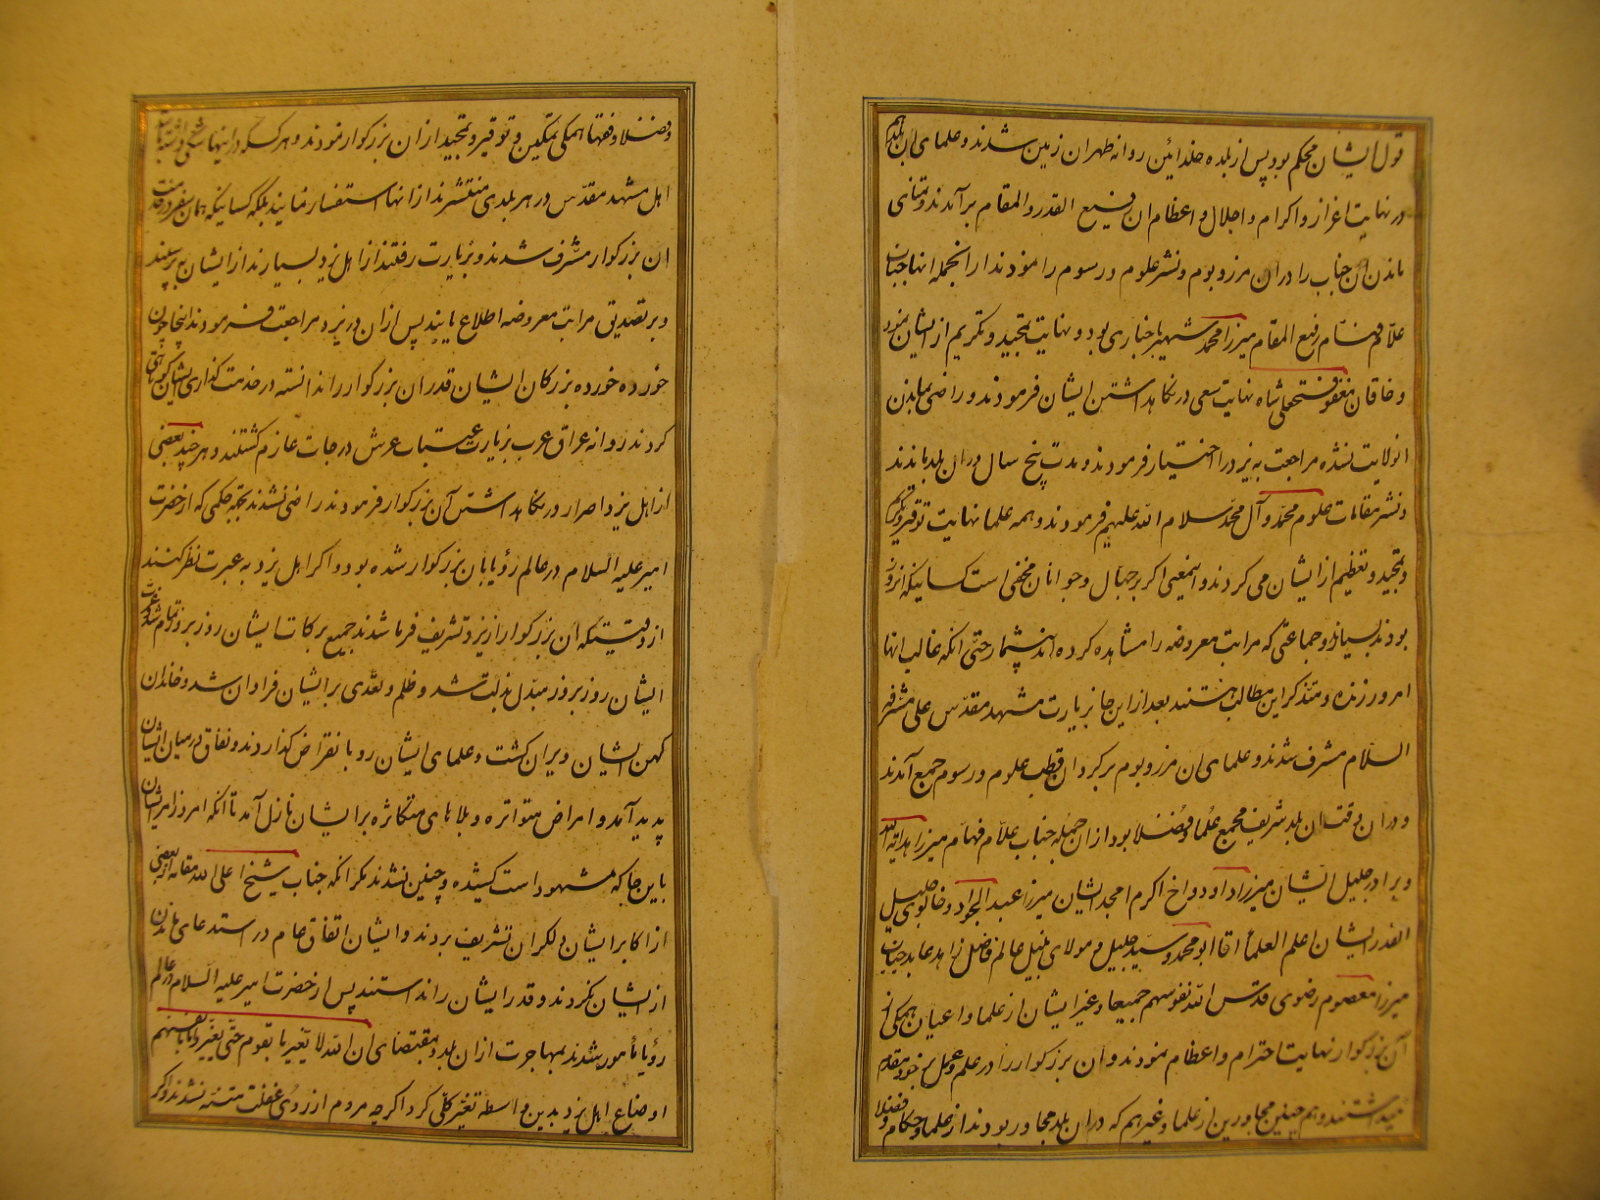 قول ایشان محکم بود پس از بلده خلد ائین روانه طهران زمین شدند و علمای ان بلد هم
در نهایت اعزاز و اکرام و اجلال و اعظام ان رفیع القدر و المقام برآمدند و تمنای
ماندن آن جناب را دران مرز و بوم و نشر علوم و رسوم را نمودند از انجمله انها جناب
علام فهام رفیع المقام میرزا محمد شهیر باخباری بود و نهایت تمجید و تکریم از ایشان نمود
و خاقان مغفور فتحعلی شاه نهایت سعی در نکاهداشتن ایشان فرمودند و راضی بماندن
انولایت نشده مراجعت به یزد را اختیار فرمودند و مدت پنج سال دران بلد ماندند
و نشر مقامات علوم محمد و آل محمد سلام الله علیهم فرمودند و همه علما نهایت توقیر و تکریم
و تمجید و تعظیم از ایشان می کردند و اینمعنی اکر بر جهال و جوانان مخفی است کسانیکه انروز
بودند بسیارند و جماعتی که مراتب معروضه را مشاهده کرده اند بیشمار حتی آنکه غالب انها
امروز زنده و متذکر این مطالب هستند بعد از این جا بزیارت مشهد مقدس علی مشرفه
السلام مشرف شدند و علمای ان مرز و بوم بر کرد ان قطب علوم و رسوم جمع آمدند
و دران وقت ان بلد شریف مجمع علما و فضلا بود از ان جمله جناب علام فهام میرزا هدایة الله
و برادر جلیل ایشان میرزا داود و اخ اکرم امجد ایشان میرزا عبد الجواد و خالوی جلیل
القدر ایشان اعلم العلماء اقا ابو محمد و سید جلیل و مولای نبیل عالم فاضل زاهد عابد جناب
میرزا معصوم رضوی قدس الله نفوسهم جمیعا و غیر ایشان از علما و اعیان همکی از
آن بزرکوار نهایت احترام و اعظام نمودند و ان بزرکوار را در علم و عمل بر خود مقدم
میداشتند و هم چنین مجاورین از علما و غیرهم که دران بلد مجاور بودند از علما و حکام و فضلا
و فضلا و فقها همکی تمکین و توقیر و تمجید از ان بزرکوار نمودند و هر کسکه در اینها شکی داشته باشد
اهل مشهد مقدس در هر بلدی منتشرند از انها استفسار نمایند بلکه کسانیکه همان سفر در خدمت
ان بزرکوار مشرف شدند و بزیارت رفتند از اهل یزد بسیارند از ایشان بپرسند
و بر تصدیق مراتب معروضه اطلاع یابند پس از ان در یزد مراجعت فرمودند اینجا چون
خورده خورده بزرکان ایشان قدر ان بزرکوار را ندانسته در خدمت کذاری ایشان کوتاهی
کردند روانه عراق عرب بزیارت عتبات عرش درجات عازم کشتند و هر چند بعضی
از اهل یزد اصرار در نکاهداشتن آن بزرکوار فرمودند راضی نشدند بجهة حکمی که از حضرت
امیر علیه السلام در عالم رؤیا بان بزرکوار شده بود و اکر اهل یزد به عبرت نظر کنند
از وقتیکه ان بزرکوار از یزد تشریف فرما شدند جمیع برکات ایشان روز بروز تمام شد و عزت
ایشان روز بروز مبدل بذلت شد و ظلم و تعدی بر ایشان فراوان شد و خاندان
کهن ایشان ویران کشت و علمای ایشان رو بانقراض کذاردند و نفاق در میان ایشان
پدید آمد و امراض متواتره و بلاهای متکاثره بر ایشان نازل آمد تا انکه امروز امر ایشان
باین جا که مشهود است کشیده و چنین نشدند مکر انکه جناب شیخ اعلی الله مقامه از بعضی
از اکابر ایشان دلکران تشریف بردند و ایشان اتفاق عام در استدعای ماندن
از ایشان نکردند و قدر ایشان را ندانستند پس از حضرت امیر علیه السلام در عالم
رؤیا مأمور شدند بمهاجرت از ان بلد و بمقتضای ان الله لا یغیر ما بقوم حتی یغیروا ما بانفسهم
اوضاع اهل یزد بدین واسطه تغیر کلی کرد اکر چه مردم از روی غفلت متنبه نشدند و اکر